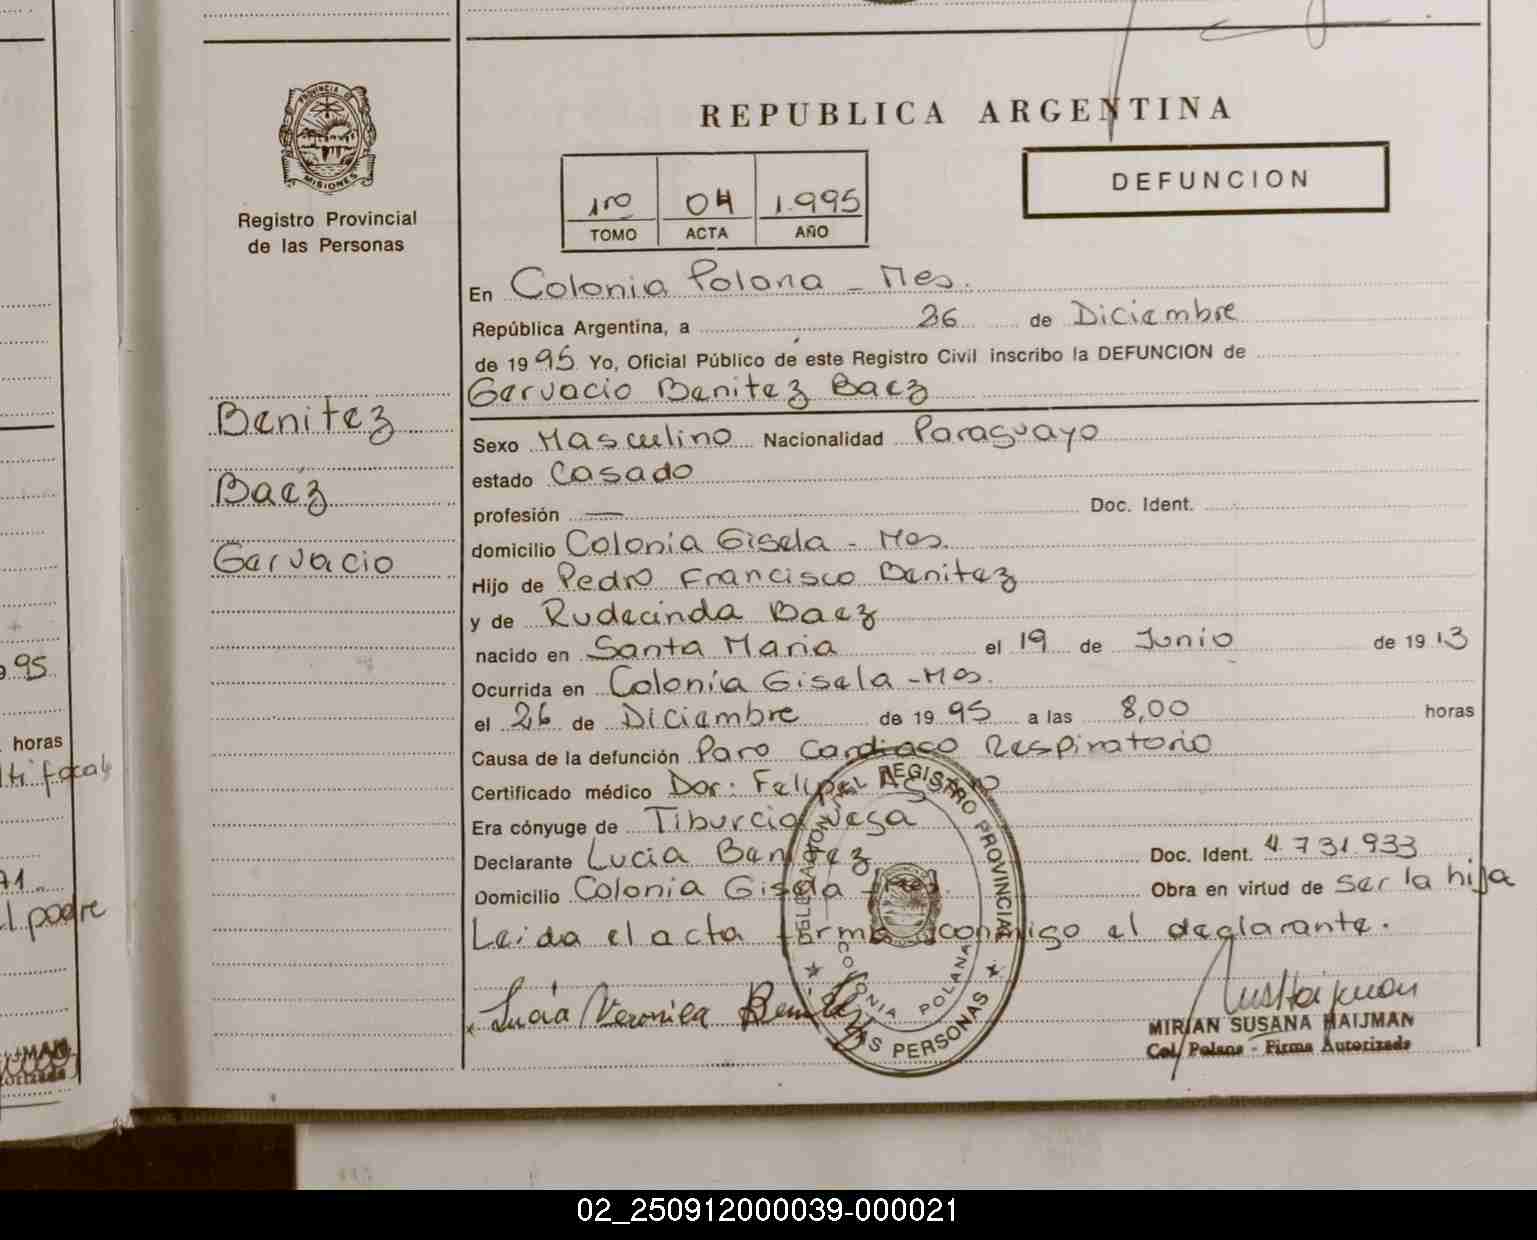 PROVINCIA DE
MISIONES
Registro Provincial
de las Personas
REPUBLICA ARGENTINA
DEFUNCION
1ro 04 1.995
TOMO ACTA AÑO
En Colonia Polana - Mes.
República Argentina, a 26 de Diciembre
de 1995 Yo, Oficial Público de este Registro Civil inscribo la DEFUNCION de
Gervacio Benitez Baez
Benitez
Baez
Gervacio
Sexo Masculino Nacionalidad Paraguayo
estado Casado
profesión — Doc. Ident.
domicilio Colonia Gisela - Mes.
Hijo de Pedro Francisco Benitez
y de Rudecinda Baez
nacido en Santa Maria el 19 de Junio de 1913
Ocurrida en Colonia Gisela - Mes.
el 26 de Diciembre de 1995 a las 8,00 horas
Causa de la defunción Paro Cardiaco Respiratorio
Certificado médico Dor: Felipe
Era cónyuge de Tiburcia Vega
Declarante Lucia Benitez Doc. Ident. 4.731.933
Domicilio Colonia Gisela - Mes. Obra en virtud de ser la hija
Leida el acta firma conmigo el declarante.
Lucia Veronica Benitez
DELEGACION DEL REGISTRO PROVINCIAL
COLONIA POLANA
DE LAS PERSONAS
MIRIAN SUSANA HAIJMAN
Col. Polana - Firma Autorizada
95
horas
ti focal
71
el padre
02_250912000039-000021